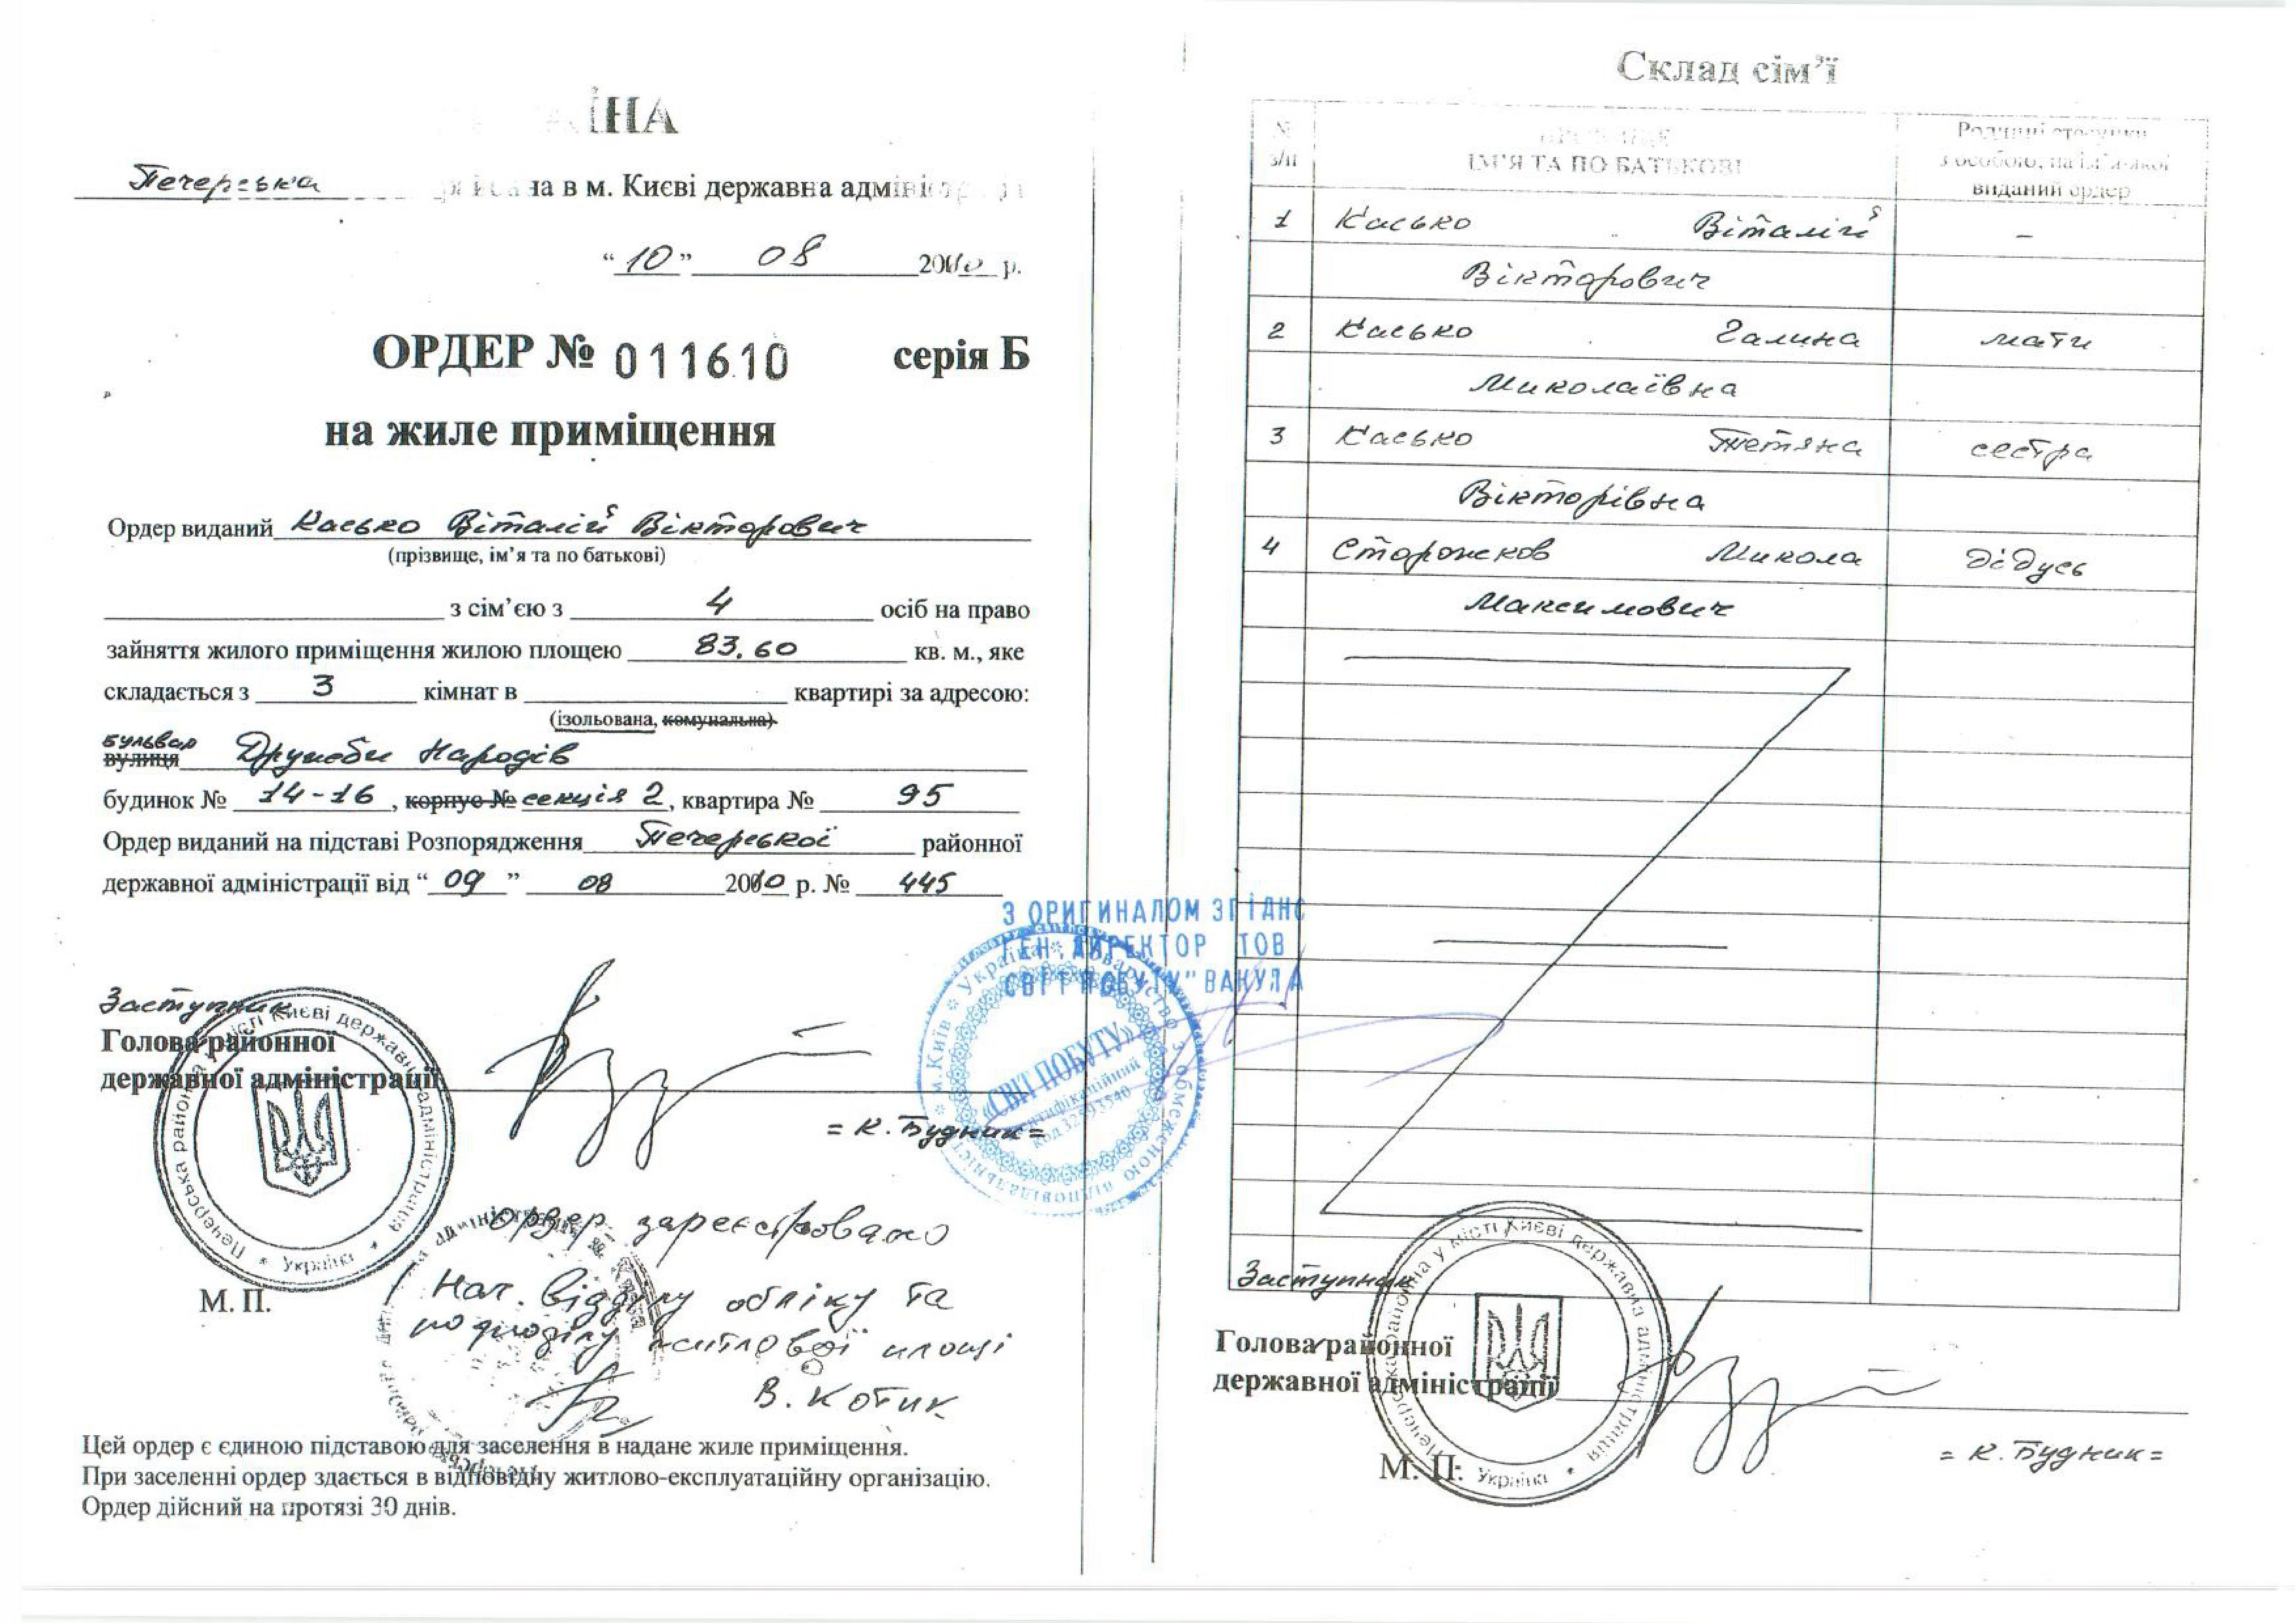 Печерська на в м. Києві державна
“ 10 ” 08 2010 р.
ОРДЕР № 011610 серія Б
на жиле приміщення
Ордер виданий Касько Віталій Вікторович
(прізвище, ім’я та по батькові)
з сім’єю з 4 осіб на право
зайняття жилого приміщення жилою площею 83.60 кв. м., яке
складається з 3 кімнат в квартирі за адресою:
(ізольована, комунальна)
бульвар
вулиця Дружби Народів
будинок № 14-16, корпус № секція 2, квартира № 95
Ордер виданий на підставі Розпорядження Печерської районної
державної адміністрації від “ 09 ” 08 2010 р. № 445
З ОРИГИНАЛОМ ЗГІДНО
ГЕН.ДИРЕКТОР ТОВ
СВІТ ПОБУТУ" ВАКУЛА
м.Київ * Україна * Товариство з обмеженою відповідальністю
«СВІТ ПОБУТУ»
ідентифікаційний
код 32593540
Заступник
Голова районної
державної адміністрації
= К. Будник =
Печерська районна у місті Києві державна адміністрація * Україна *
М. П.
Ордер зареєстровано
Нач. відділу обліку та
розподілу житлової площі
В. Котик
Цей ордер є єдиною підставою для заселення в надане жиле приміщення.
При заселенні ордер здається в відповідну житлово-експлуатаційну організацію.
Ордер дійсний на протязі 30 днів.
Склад сім’ї
№ з/п ІМ’Я ТА ПО БАТЬКОВІ Родинні стосунки
з особою, на ім’я якої
виданий ордер
1 Касько Віталій –
Вікторович
2 Касько Галина мати
Миколаївна
3 Касько Тетяна сестра
Вікторівна
4 Сторожков Микола дідусь
Максимович
Заступник
Голова районної
державної адміністрації
= К. Будник =
Печерська районна у місті Києві державна адміністрація * Україна *
М. П.